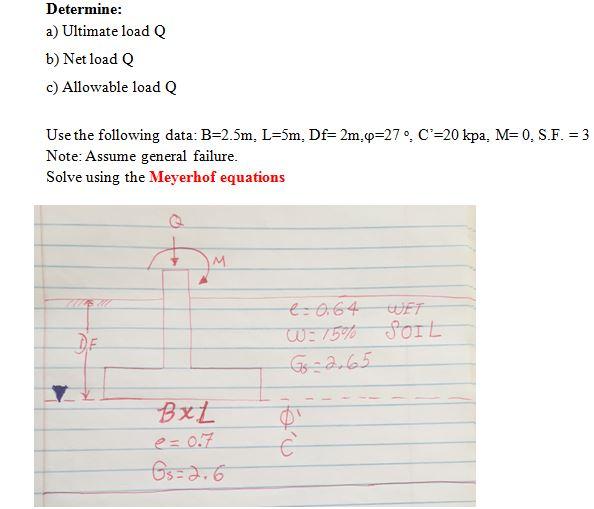 Determine:
a) Ultimate load Q
b) Net load Q
c) Allowable load Q
Use the following data: B=2.5m, L=5m, Df= 2m,φ=27 °, C'=20 kpa, M= 0, S.F. = 3
Note: Assume general failure.
Solve using the Meyerhof equations
Q
M
e=0.64 WET
W=15% SOIL
Gs=2.65
DF
BxL
e=0.7
Gs=2.6
ϕ'
C'